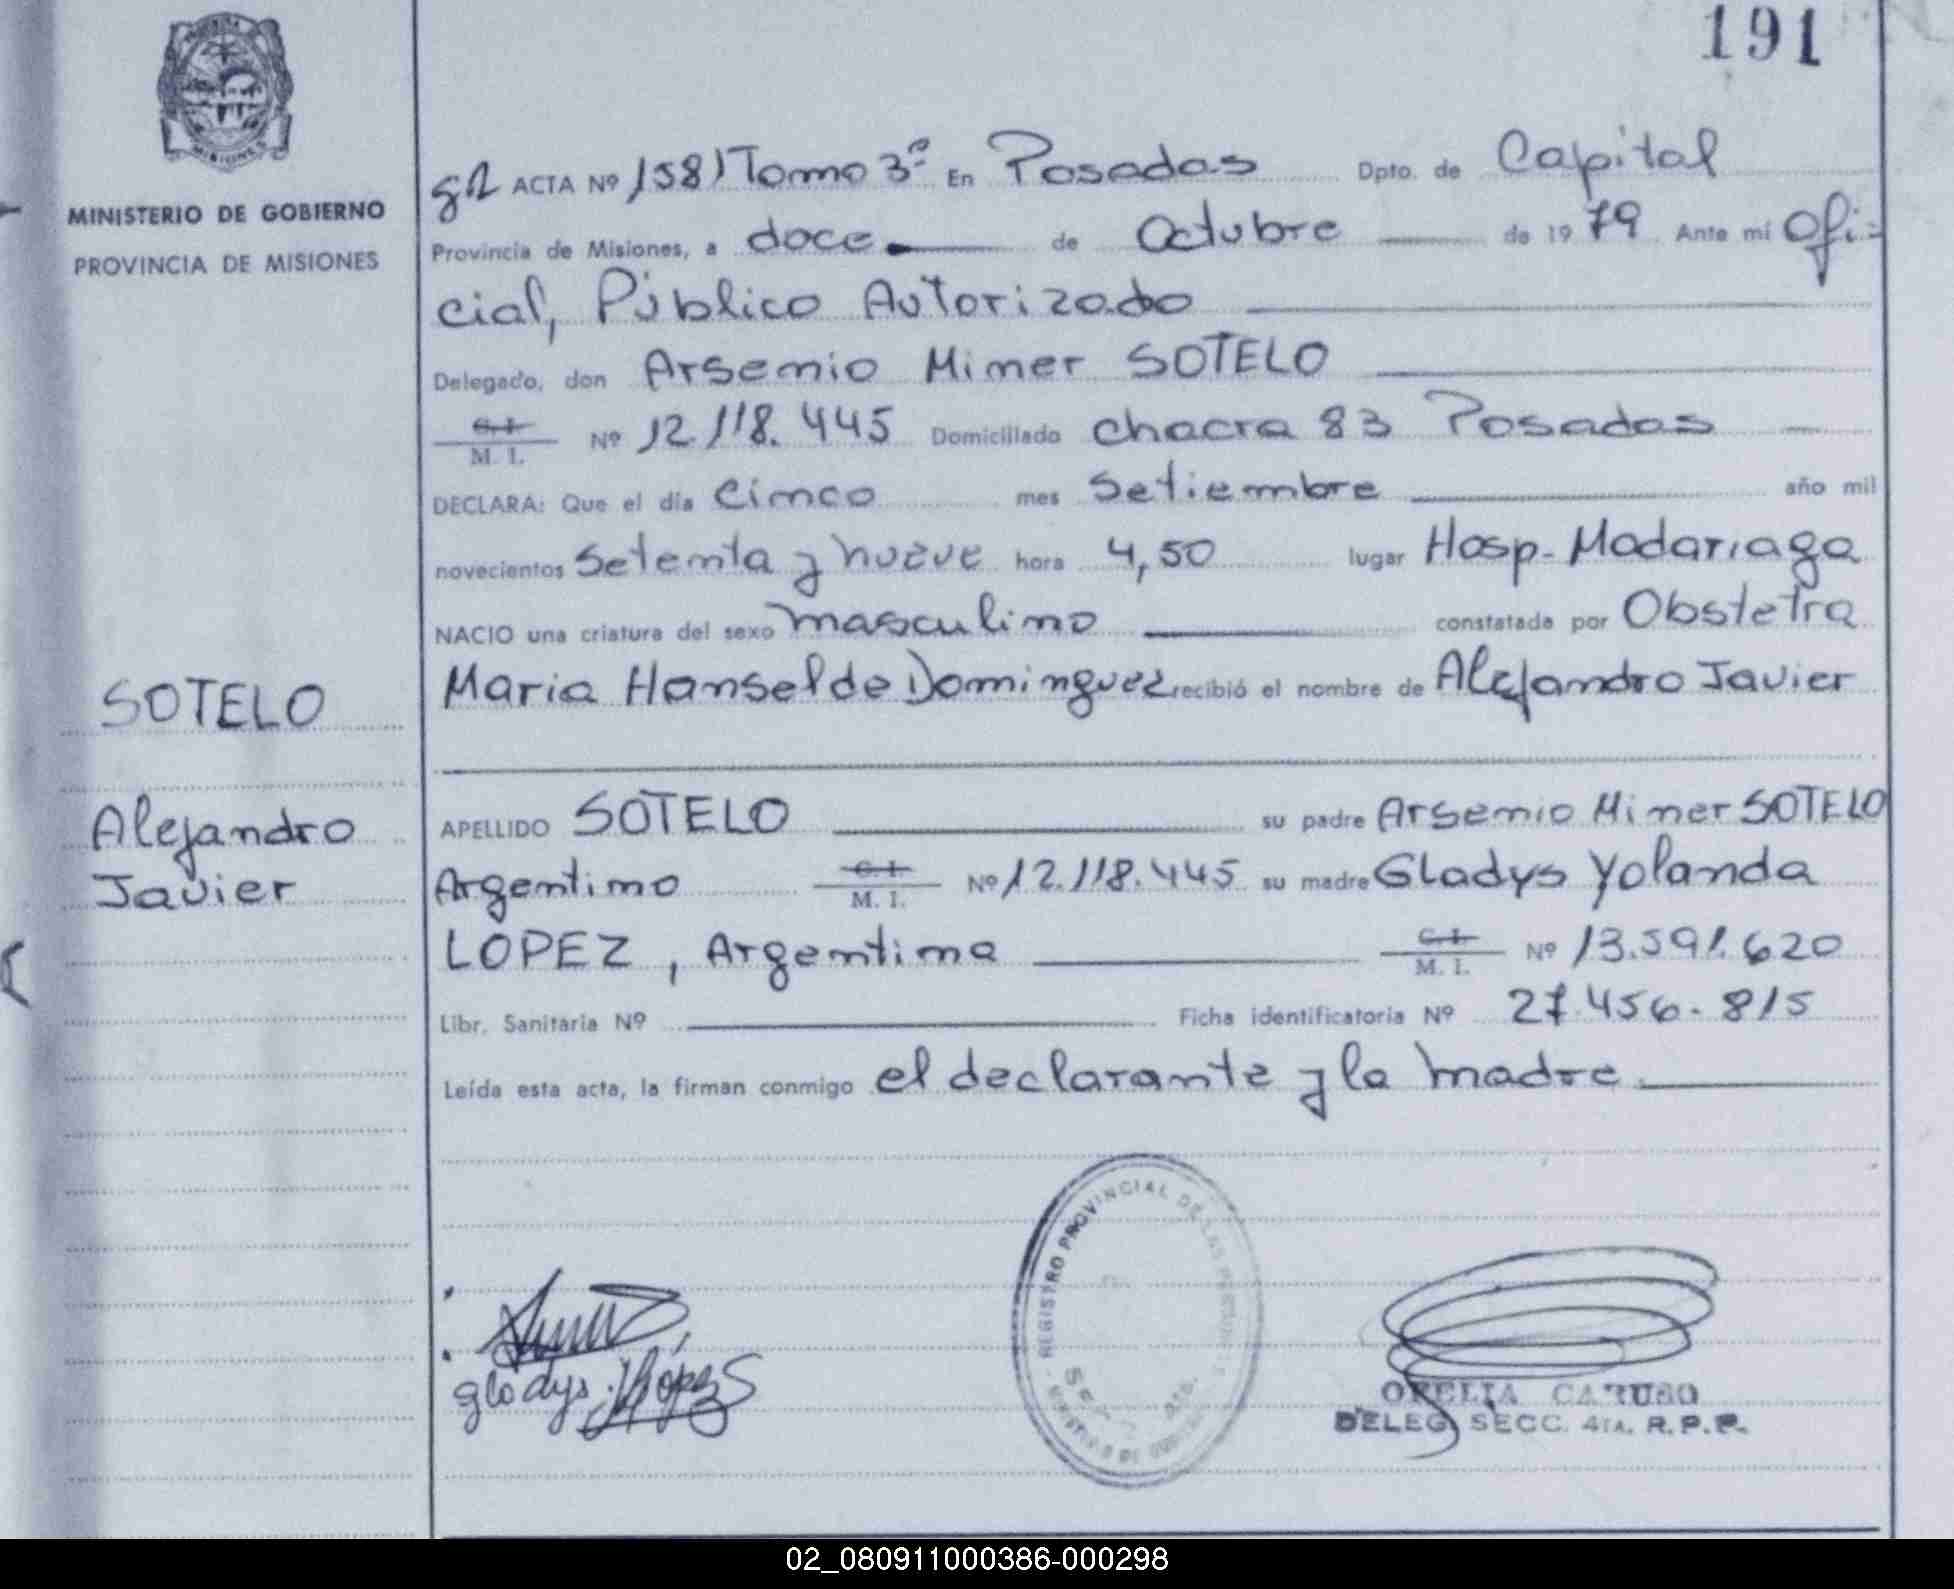 191
MISIONES
MINISTERIO DE GOBIERNO
PROVINCIA DE MISIONES
SOTELO
Alejandro
Javier
ACTA Nº 1581 Tomo 3º En Posadas Dpto. de Capital
Provincia de Misiones, a doce de Octubre de 1979 Ante mí Ofi-
cial, Público Autorizado
Delegado, don Arsenio Miner SOTELO
C.I. M. I. Nº 12.118.445 Domiciliado chacra 83 Posadas
DECLARA: Que el día Cinco mes Setiembre año mil
novecientos Setenta y nueve hora 4,50 lugar Hosp. Madariaga
NACIO una criatura del sexo masculino constatada por Obstetra
Maria Hansel de Dominguez recibió el nombre de Alejandro Javier
APELLIDO SOTELO su padre Arsenio Miner SOTELO
Argentino C.I. M. I. Nº 12.118.445 su madre Gladys Yolanda
LOPEZ, Argentina C.I. M. I. Nº 13.591.620
Libr. Sanitaria Nº Ficha identificatoria Nº 27.456.815
Leída esta acta, la firman conmigo el declarante y la madre
REGISTRO PROVINCIAL DE LAS PERSONAS
gladys López
OFELIA CARUSO
DELEG. SECC. 4TA. R.P.P.
02_080911000386-000298